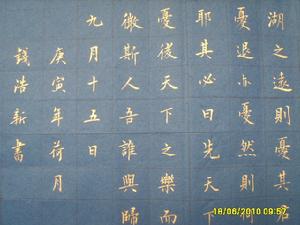 湖之遠則憂其君
憂退亦憂然則何
耶其必曰先天下
憂後天下之樂而
微斯人吾誰與歸
九月十五日
庚寅年荷月
錢浩新書
18/06/2010 09:57